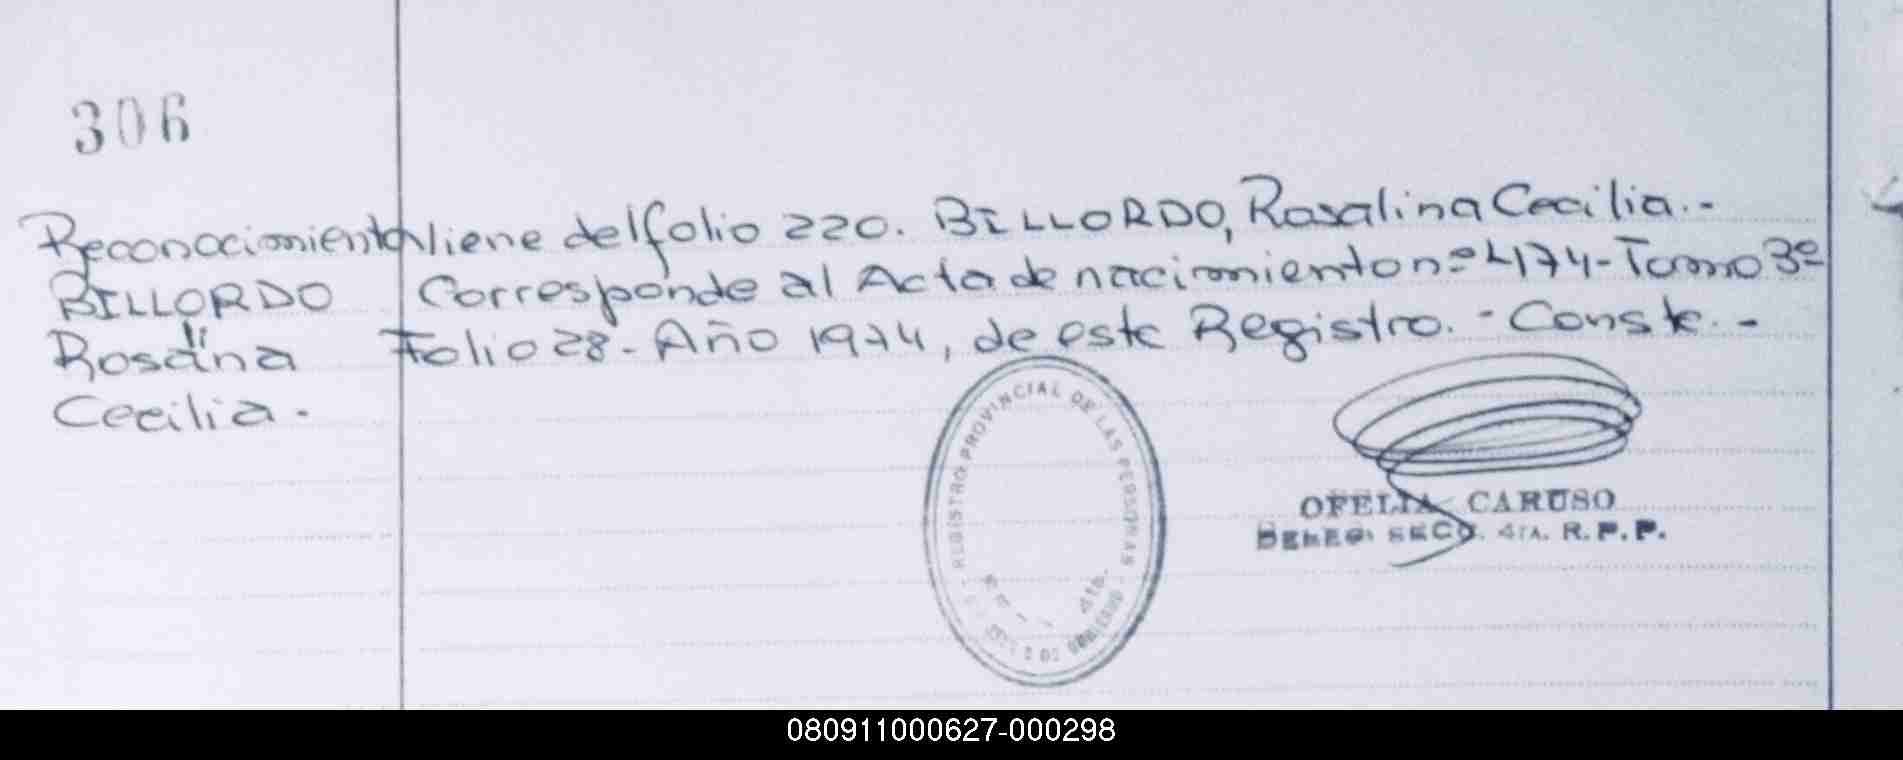 306
Reconocimiento
BILLORDO
Rosalina
Cecilia.
Viene del folio 220. BILLORDO, Rosalina Cecilia.-
Corresponde al Acta de nacimiento nº 474-Tomo 3º
Folio 28- Año 1974, de este Registro.- Conste.-
REGISTRO PROVINCIAL DE LAS PERSONAS
4ta.
OFELIA CARUSO
DELEG. SECC. 4TA. R.P.P.
080911000627-000298